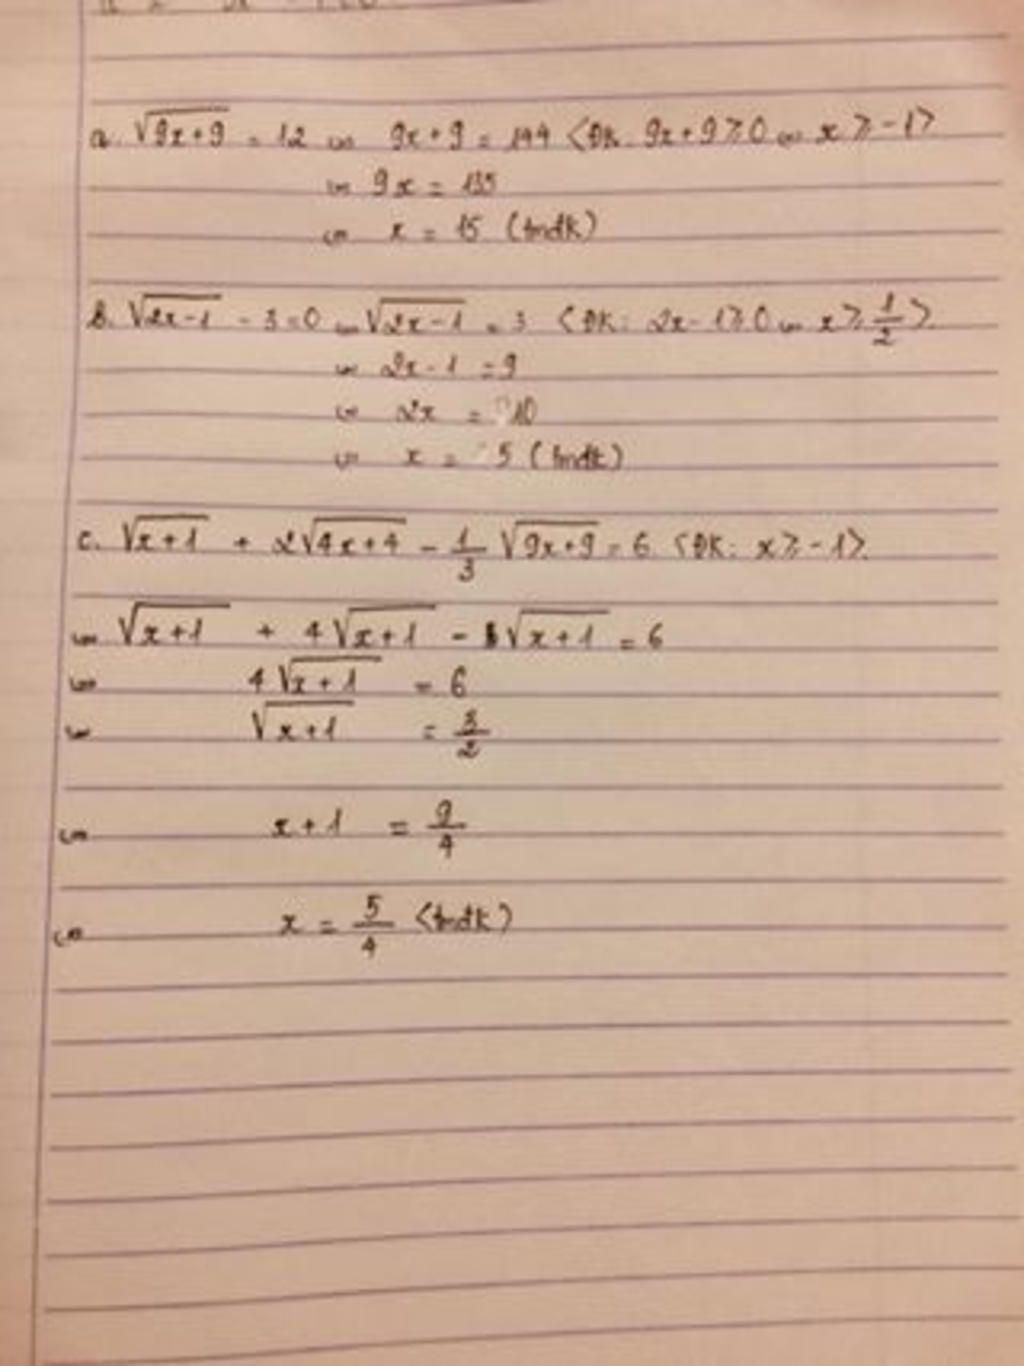 a. √(9x+9) = 12 ⇔ 9x+9 = 144 <ĐK: 9x+9 ⩾ 0 ⇔ x ⩾ -1>
⇔ 9x = 135
⇔ x = 15 (tmđk)
b. √(2x-1) - 3 = 0 ⇔ √(2x-1) = 3 <ĐK: 2x-1 ⩾ 0 ⇔ x ⩾ 1/2>
⇔ 2x-1 = 9
⇔ 2x = 10
⇔ x = 5 (tmđk)
c. √(x+1) + 2√(4x+4) - 1/3 √(9x+9) = 6 <ĐK: x ⩾ -1>
⇔ √(x+1) + 4√(x+1) - √(x+1) = 6
⇔ 4√(x+1) = 6
⇔ √(x+1) = 3/2
⇔ x+1 = 9/4
⇔ x = 5/4 <tmđk>